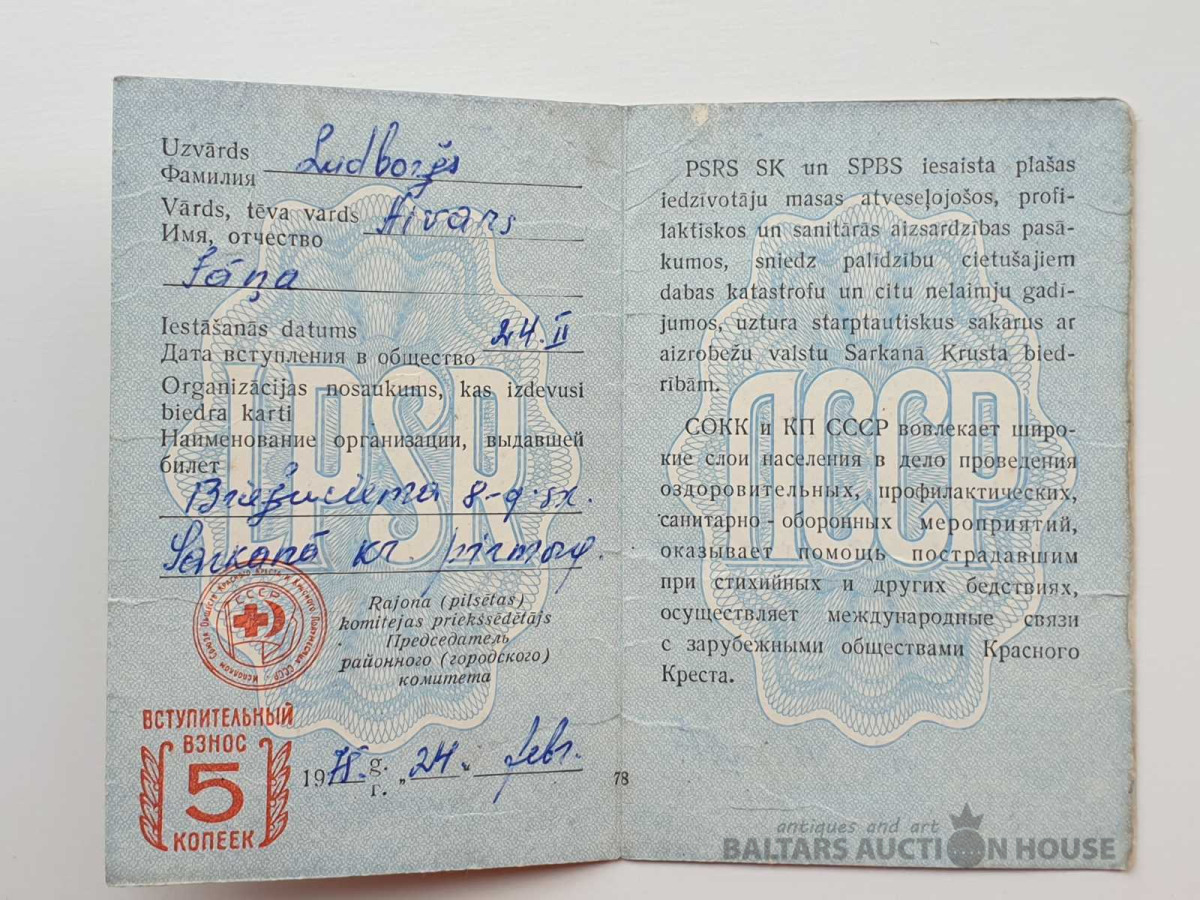 Uzvārds
Фамилия
Ludboržs
Vārds, tēva vārds
Имя, отчество
Aivars
Jāņa
Iestāšanās datums
Дата вступления в общество
24. II
Organizācijas nosaukums, kas izdevusi
biedra karti
Наименование организации, выдавшей
билет
8-g. sk.
Sarkanā kr. pirmorg.
Rajona (pilsētas)
komitejas priekšsēdētājs
Председатель
районного (городского)
комитета
СССР
ВСТУПИТЕЛЬНЫЙ
ВЗНОС
5
КОПЕЕК
1978 g. „24“ febr.
г.
78
LPSR
PSRS SK un SPBS iesaista plašas
iedzīvotāju masas atveseļojošos, profi-
laktiskos un sanitārās aizsardzības pasā-
kumos, sniedz palīdzību cietušajiem
dabas katastrofu un citu nelaimju gadī-
jumos, uztura starptautiskus sakarus ar
aizrobežu valstu Sarkanā Krusta bied-
rībām.
СОКК и КП СССР вовлекает широ-
кие слои населения в дело проведения
оздоровительных, профилактических,
санитарно-оборонных мероприятий,
оказывает помощь пострадавшим
при стихийных и других бедствиях,
осуществляет международные связи
с зарубежными обществами Красного
Креста.
ЛССР
antiques and art
BALTARS AUCTION HOUSE